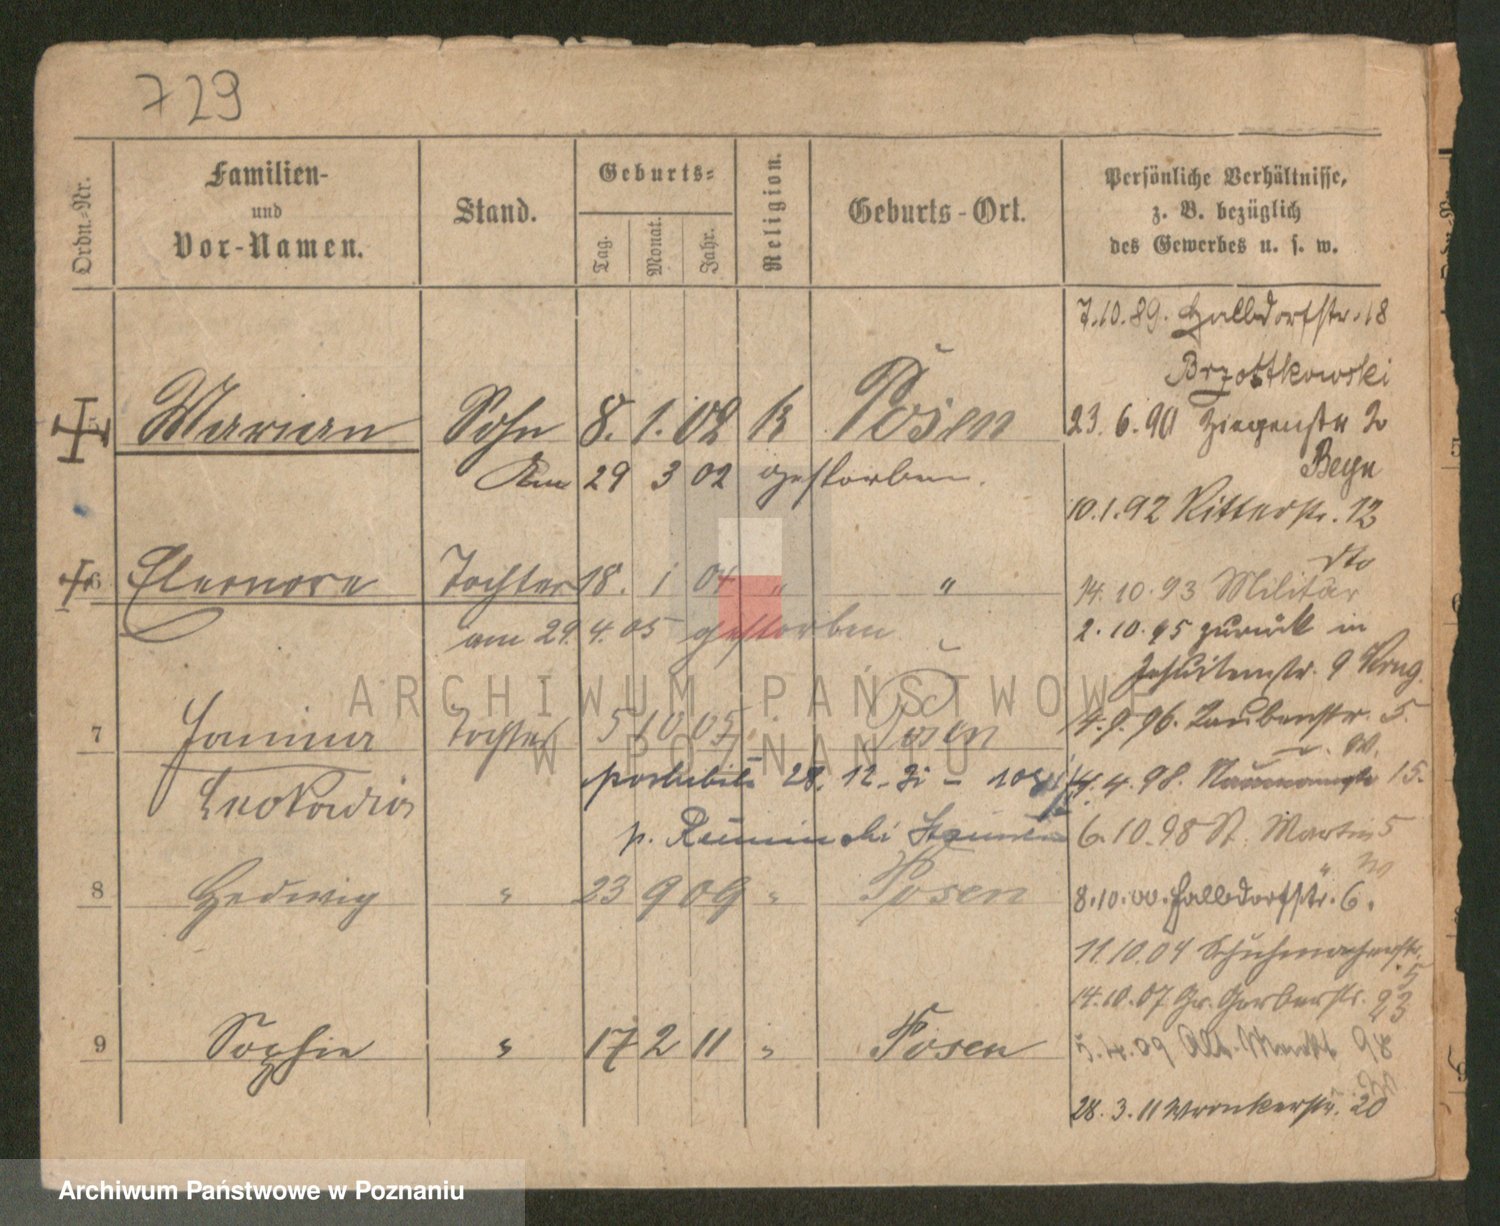 729
Ordn.-Nr.
Familien-
und
Vor-Namen.
Stand.
Geburts-
Tag.
Monat.
Jahr.
Religion.
Geburts-Ort.
Persönliche Verhältnisse,
z. B. bezüglich
des Gewerbes u. s. w.
7.10.89. Halbdorfstr. 18
Brzostkowski
Marian Sohn 8. 1. 02 K Posen
23. 6. 90 Ziegenstr
am 29 3 02 gestorben.
10.1.92 Ritterstr. 12
dto
6 Eleonore Tochter 18. 1 04 " "
14. 10. 93 Militär
am 29. 4. 05 gestorben
2. 10. 95 zurück in
Jesuitenstr. 9
7 Janina Tochter 5 10 05 " Posen
4. 9. 96. Taubenstr. 5.
Leokadia
28. 12.
14. 4. 98. Naumannstr 15.
p.
6. 10. 98 St. Martin 5
8 Hedwig " 23 9 09 " Posen
8. 10. 00. Halbdorfstr. 6.
11.10.04 Schuhmacherstr.
5
14. 10. 07 Gr. Gerberstr. 23
9 Sophie " 17 2 11 " Posen
5. 4. 09 Alt. Markt 98
28. 3. 11 Wronkerstr. 20
ARCHIWUM PAŃSTWOWE
W POZNANIU
Archiwum Państwowe w Poznaniu